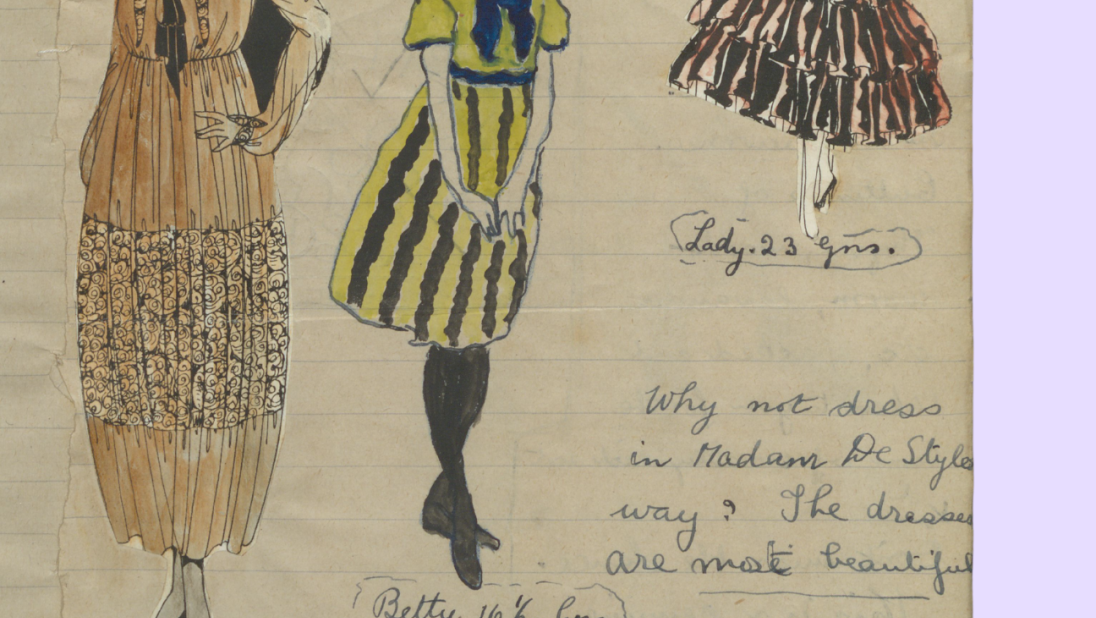 Lady. 23 gns.
Why not dress
in Madam De Style
way? The dresses
are most beautiful
Betty. 16½ Gns